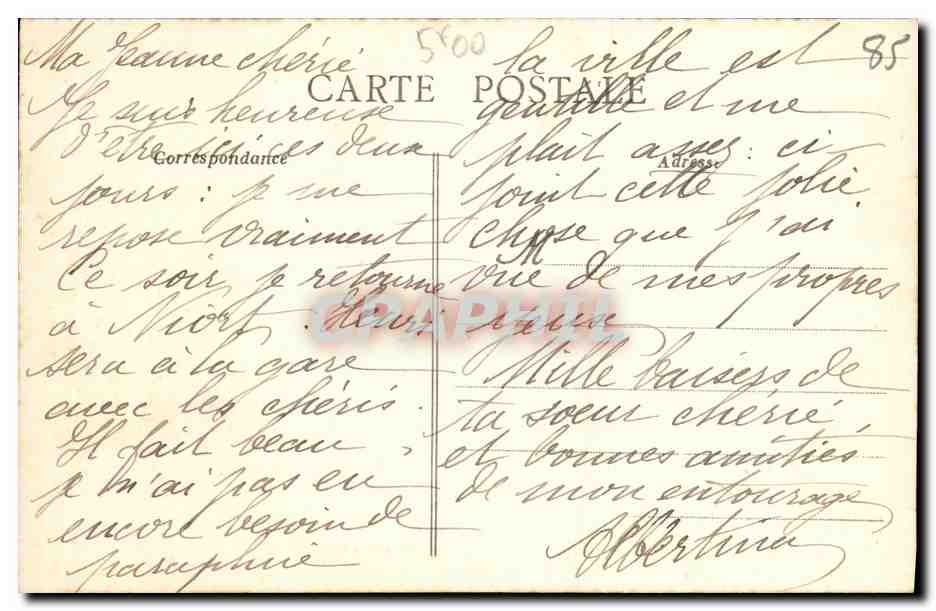 5f00
85
CARTE POSTALE
Correspondance
Adresse
Ma Jeanne chérie
Je suis heureuse
d'être ici ces deux
jours : je me
repose vraiment
Ce soir je retourne
à Niort. Henri
sera à la gare
avec les chéris.
Il fait beau,
je n'ai pas eu
encore besoin de
parapluie
la ville est
gentille et me
plait assez : ci
joint cette jolie
chose que j'ai
vue de mes propres
yeux
Mille baisers de
ta soeur chérie,
et bonnes amitiés
de mon entourage
Albertina
CPAPHIL